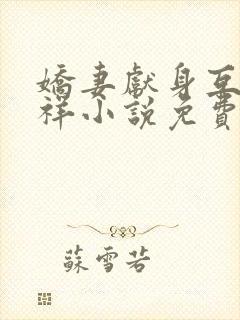 嬌妻獻身互
祥小說免費
蘇雪若